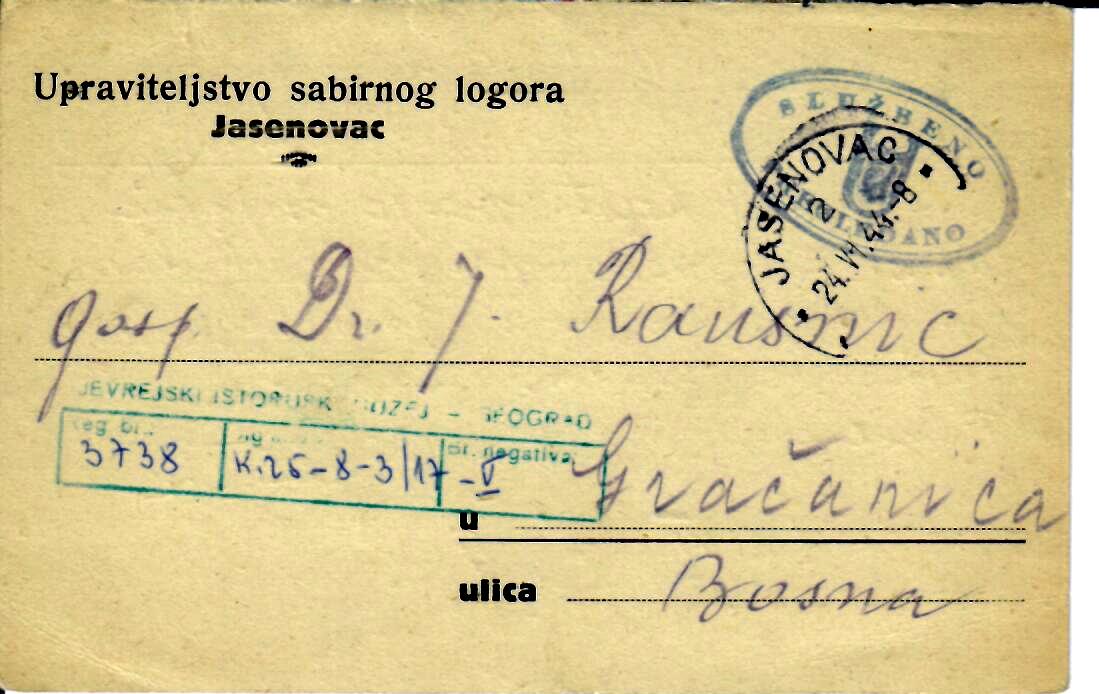 Upraviteljstvo sabirnog logora
Jasenovac
SLUŽBENO
JASENOVAC
2
24. VI. 44.-8
gosp. Dr. J.
JEVREJSKI ISTORIJSKI MUZEJ - BEOGRAD
Reg. br.
Br. negativa
3738
K.25-8-3/17
-V
u Gračanica
ulica Bosna